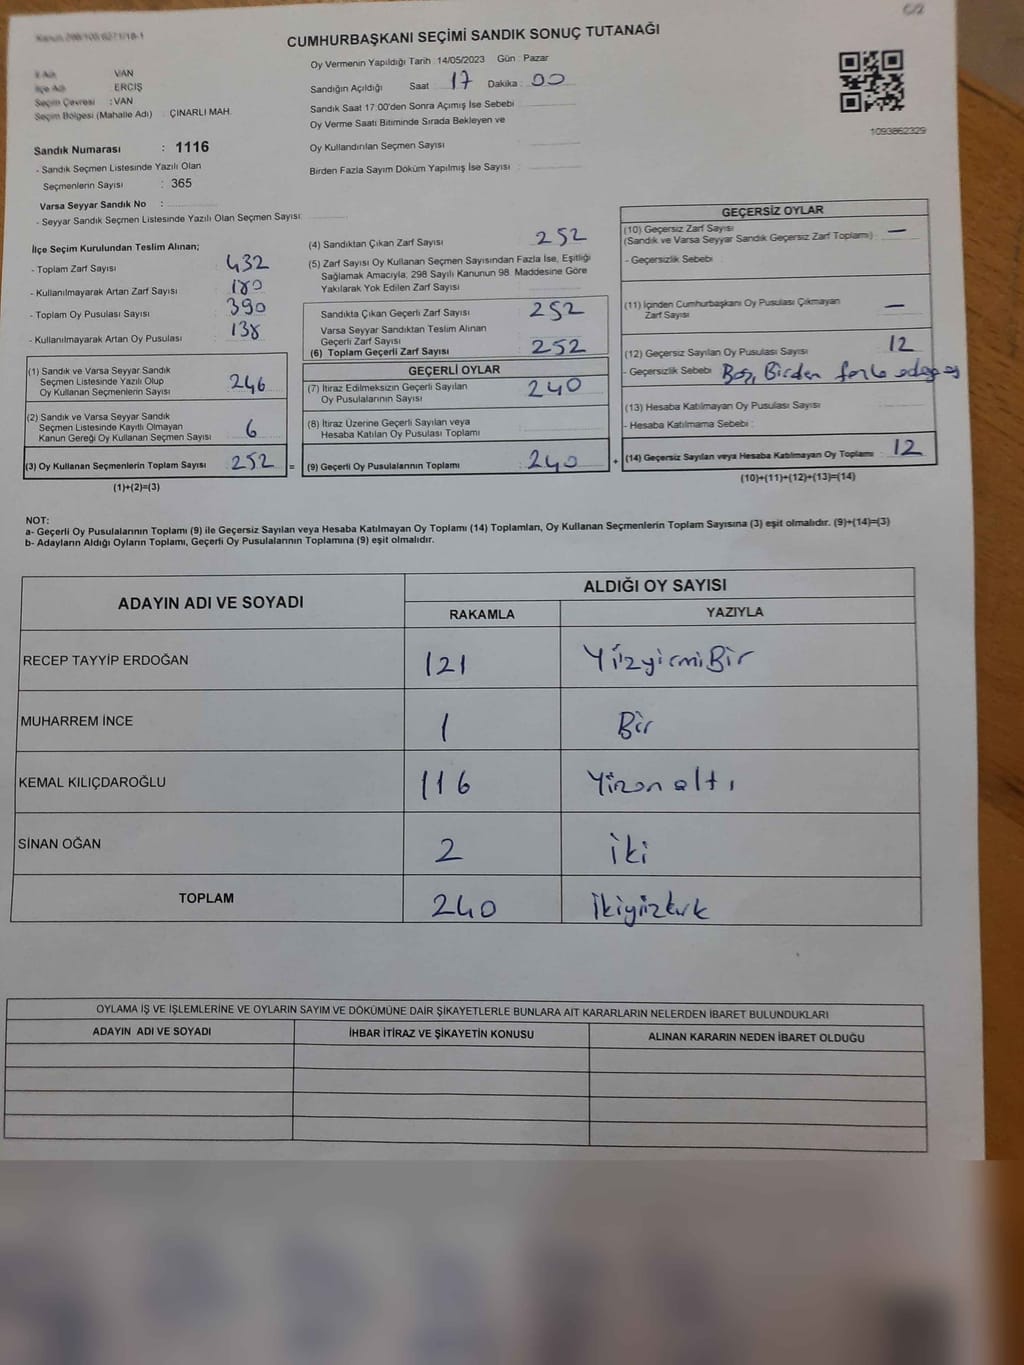 CUMHURBAŞKANI SEÇİMİ SANDIK SONUÇ TUTANAĞI
İl Adı : VAN
İlçe Adı : ERCİŞ
Seçim Çevresi : VAN
Seçim Bölgesi (Mahalle Adı) : ÇINARLI MAH.
Sandık Numarası : 1116
- Sandık Seçmen Listesinde Yazılı Olan
Seçmenlerin Sayısı : 365
Varsa Seyyar Sandık No :
- Seyyar Sandık Seçmen Listesinde Yazılı Olan Seçmen Sayısı:
Oy Vermenin Yapıldığı Tarih : 14/05/2023 Gün : Pazar
Sandığın Açıldığı Saat : 17 Dakika : 00
Sandık Saat 17:00'den Sonra Açımış İse Sebebi :
Oy Verme Saati Bitiminde Sırada Bekleyen ve
Oy Kullandırılan Seçmen Sayısı :
Birden Fazla Sayım Döküm Yapılmış İse Sayısı :
1093862329
İlçe Seçim Kurulundan Teslim Alınan;
- Toplam Zarf Sayısı : 432
- Kullanılmayarak Artan Zarf Sayısı : 180
- Toplam Oy Pusulası Sayısı : 390
- Kullanılmayarak Artan Oy Pusulası : 138
(1) Sandık ve Varsa Seyyar Sandık
Seçmen Listesinde Yazılı Olup
Oy Kullanan Seçmenlerin Sayısı : 246
(2) Sandık ve Varsa Seyyar Sandık
Seçmen Listesinde Kayıtlı Olmayan
Kanun Gereği Oy Kullanan Seçmen Sayısı : 6
(3) Oy Kullanan Seçmenlerin Toplam Sayısı : 252 =
(1)+(2)=(3)
(4) Sandıktan Çıkan Zarf Sayısı : 252
(5) Zarf Sayısı Oy Kullanan Seçmen Sayısından Fazla İse, Eşitliği
Sağlamak Amacıyla, 298 Sayılı Kanunun 98. Maddesine Göre
Yakılarak Yok Edilen Zarf Sayısı :
Sandıkta Çıkan Geçerli Zarf Sayısı : 252
Varsa Seyyar Sandıktan Teslim Alınan
Geçerli Zarf Sayısı :
(6) Toplam Geçerli Zarf Sayısı : 252
GEÇERLİ OYLAR
(7) İtiraz Edilmeksizin Geçerli Sayılan
Oy Pusulalarının Sayısı : 240
(8) İtiraz Üzerine Geçerli Sayılan veya
Hesaba Katılan Oy Pusulası Toplamı :
(9) Geçerli Oy Pusulalarının Toplamı : 240 +
GEÇERSİZ OYLAR
(10) Geçersiz Zarf Sayısı
(Sandık ve Varsa Seyyar Sandık Geçersiz Zarf Toplamı) : —
- Geçersizlik Sebebi :
(11) İçinden Cumhurbaşkanı Oy Pusulası Çıkmayan
Zarf Sayısı : —
(12) Geçersiz Sayılan Oy Pusulası Sayısı : 12
- Geçersizlik Sebebi : Boş, Birden fazla
(13) Hesaba Katılmayan Oy Pusulası Sayısı :
- Hesaba Katılmama Sebebi :
(14) Geçersiz Sayılan veya Hesaba Katılmayan Oy Toplamı : 12
(10)+(11)+(12)+(13)=(14)
NOT:
a- Geçerli Oy Pusulalarının Toplamı (9) ile Geçersiz Sayılan veya Hesaba Katılmayan Oy Toplamı (14) Toplamları, Oy Kullanan Seçmenlerin Toplam Sayısına (3) eşit olmalıdır. (9)+(14)=(3)
b- Adayların Aldığı Oyların Toplamı, Geçerli Oy Pusulalarının Toplamına (9) eşit olmalıdır.
ADAYIN ADI VE SOYADI
ALDIĞI OY SAYISI
RAKAMLA YAZIYLA
RECEP TAYYİP ERDOĞAN 121 YüzyirmiBir
MUHARREM İNCE 1 Bir
KEMAL KILIÇDAROĞLU 116 Yüzon altı
SİNAN OĞAN 2 iki
TOPLAM 240 ikiyüzkırk
OYLAMA İŞ VE İŞLEMLERİNE VE OYLARIN SAYIM VE DÖKÜMÜNE DAİR ŞİKAYETLERLE BUNLARA AİT KARARLARIN NELERDEN İBARET BULUNDUKLARI
ADAYIN ADI VE SOYADI İHBAR İTİRAZ VE ŞİKAYETİN KONUSU ALINAN KARARIN NEDEN İBARET OLDUĞU